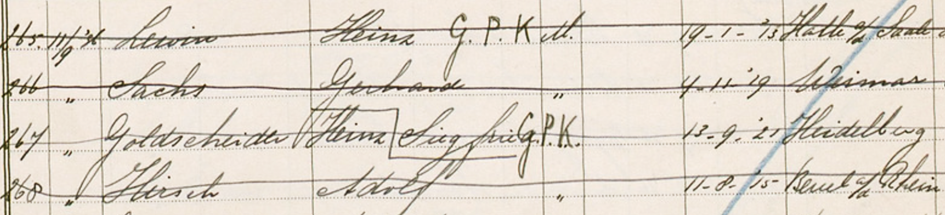 265. 11/9 '36 Lewin Heinz G.P.K M. 19-1-'13 Halle a/d Saale
266 " Sachs Gerhard " 4-11-'19 Weimar
267 " Goldscheider Heinz Siegfried G.P.K. 13-9.'21 Heidelberg
268 " Hirsch Adolf " 11-8-'15 Beuel a/d Rhein